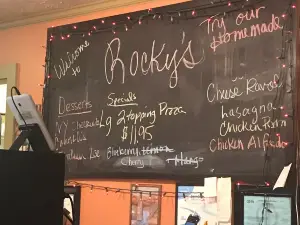 Welcome
To
Rocky's
Try our
Homemade
Desserts
NY Cheesecake
Specials
Lg 2 topping Pizza
$11.95
Blueberry, Lemon
Cherry, Mango
Cheese Ravioli
Lasagna
Chicken Parm
Chicken Alfredo